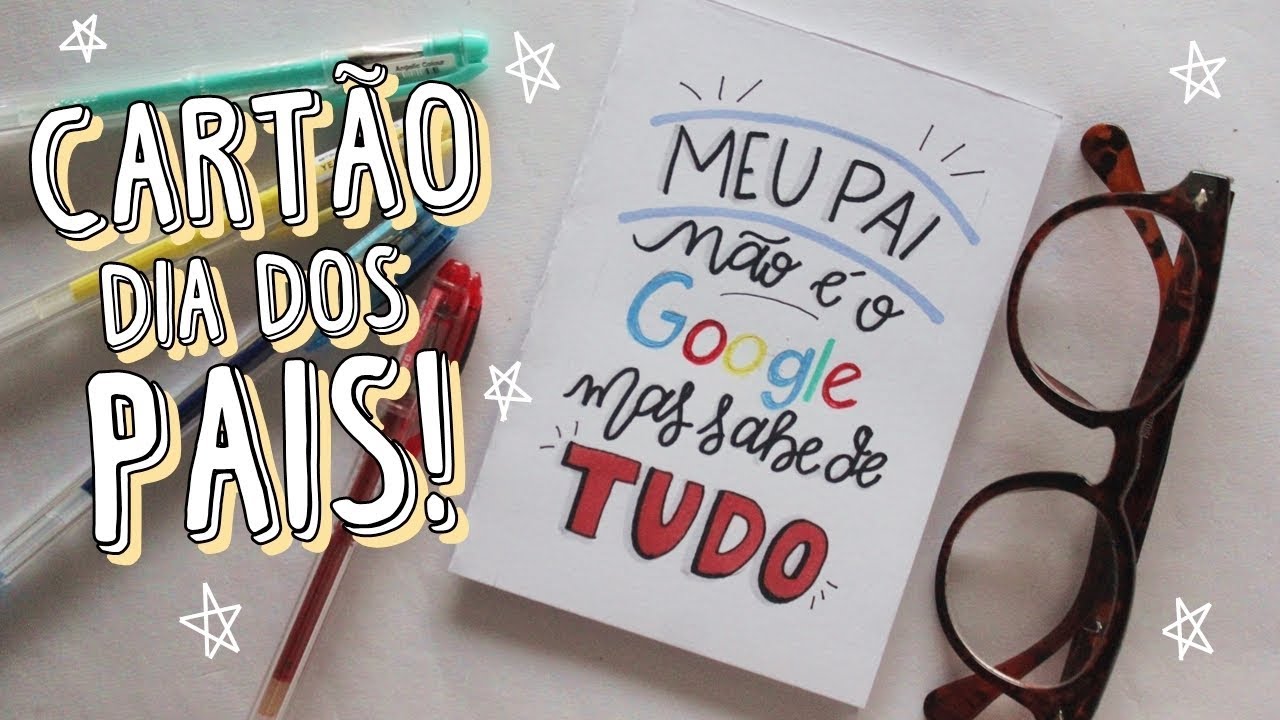 CARTÃO
DIA DOS
PAIS!
MEU PAI
não é o
Google
mas sabe de
TUDO
Angelic Colour